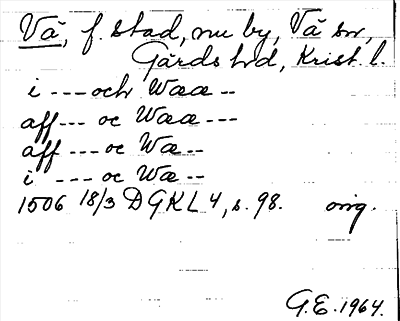 Vä, f. stad, nu by, Vä sn,
Gärds hd, Krist. l.
i --- och Wææ --
aff --- oc Wææ ---
aff --- oc Wæ --
i --- oc Wæ --
1506 18/3 DGKL 4, s. 98. orig.
G.E. 1964.